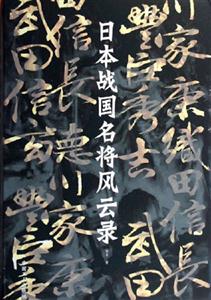 川家康織田信長
豐臣秀吉
武田
日本战国名将风云录
信長德川家康
武田信玄豐臣